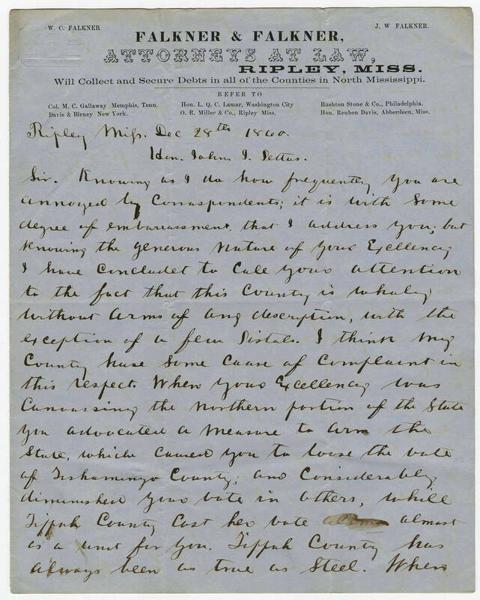 W. C. FALKNER
J. W. FALKNER.
FALKNER & FALKNER,
ATTORNEYS AT LAW,
RIPLEY, MISS.
Will Collect and Secure Debts in all of the Counties in North Mississippi.
REFER TO
Col. M. C. Gallaway Memphis, Tenn. Hon. L. Q. C. Lamar, Washington City Rushton Stone & Co., Philadelphia.
Davis & Birney New York. O. R. Miller & Co., Ripley Miss, Hon. Reuben Davis, Abberdeen, Miss.
Ripley Miss. Dec 28th 1860.
Hon. John J. Pettus.
Sir. Knowing as I do how frequently you are
annoyed by Corrispondents; it is with some
degree of embarrassment that I address you; but
Knowing the generous nature of your Excellency
I have concludet to call your attention
to the fact that this County is wholy
without arms of any description, with the
exception of a few Pistols. I think my
County have some cause of complaint in
this respect. When your Excellency was
Canvassing the Northern portion of the State
you advocated a measure to arm the
State, which caused you to loose the vote
of Tishamingo County; and Considerably
diminished your vote in others, while
Tippah County Cast her vote almost
as a unit for you. Tippah County has
always been as true as Steel. When